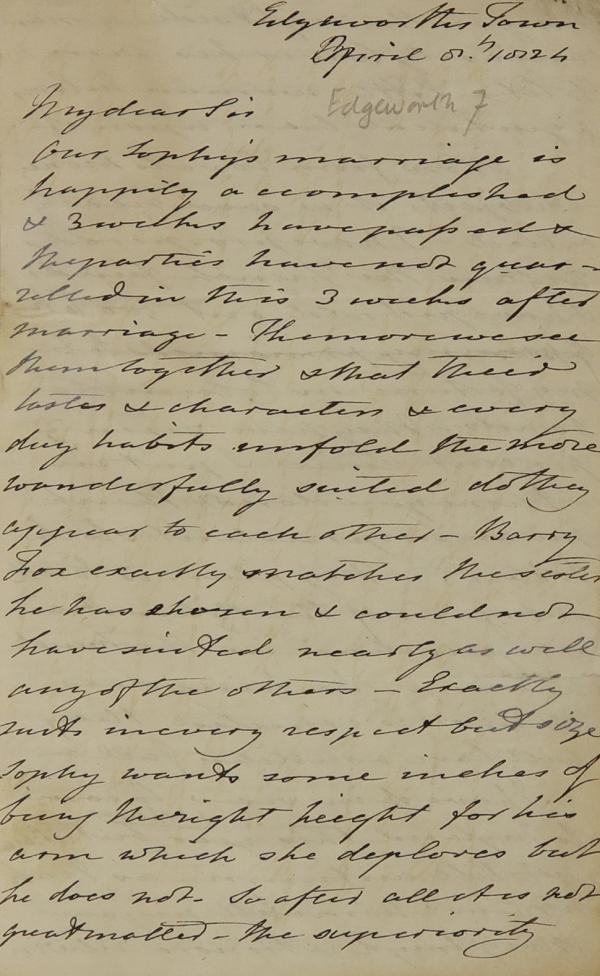 Edgeworths Town
April 8.th 1824
My dear Sir
Edgeworth 7
Our Sophy's marriage is
happily accomplished
& 3 weeks have passed &
the parties have not quar-
relled in this 3 weeks after
marriage - The more we see
them together & that their
tastes & characters & every
day habits unfold the more
wonderfully suited do they
appear to each other - Barry
Fox exactly matches the sister
he has chosen & could not
have suited nearly as well
any of the others - Exactly
suits in every respect but size
Sophy wants some inches of
being the right height for his
arm which she deplores but
he does not. So after all it is not
great matter - the superiority